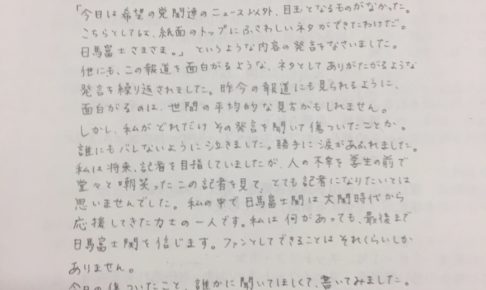 「今日は希望の党関連のニュース以外、目玉となるものがなかった。
こちらとしては、紙面のトップにふさわしいネタができたわけだ。
日馬富士さまさま。」というような内容の発言をなさいました。
他にも、この報道を面白がるような、ネタとしてありがたがるような
発言を繰り返されました。昨今の報道にも見られるように、
面白がるのは、世間の平均的な見方かもしれません。
しかし、私がどれだけその発言を聞いて傷ついたことか。
誰にもバレないように泣きました。勝手に涙があふれました。
私は将来、記者を目指していましたが、人の不幸を学生の前で
堂々と嘲笑ったこの記者を見て、とても記者になりたいとは
思いませんでした。私の中で日馬富士関は大関時代から
応援してきた力士の一人です。私は何があっても、最後まで
日馬富士関を信じます。ファンとしてできることはそれくらいしか
ありません。
今日の傷ついたこと、誰かに聞いてほしくて、書いてみました。